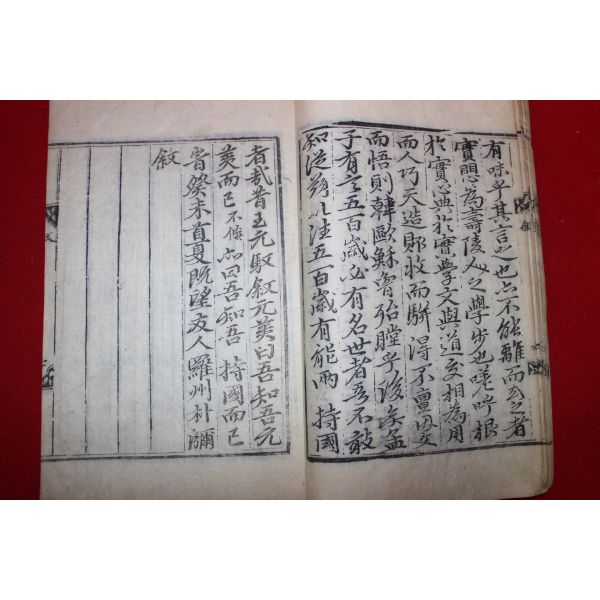 有味乎其言之也亦不能離而玄之者
實閟爲壽陵人之學步也嗟呼根
於實心典於實學文與道交相爲用
而人巧天造賅收而駢得不亶因文
而悟則韓歐蘇曾殆瞠乎後矣孟
子有言五百歲必有名世者吾不敢
知從玆以往五百歲有能兩 持國
者哉昔王元馭敘元美曰吾知吾元
美而已不佞亦曰吾知吾 持國而已
旹癸未直夏旣望友人羅州朴彌
敘